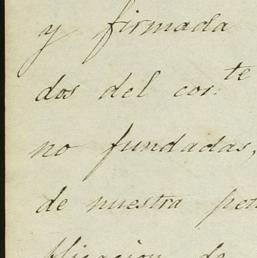 y firmada
dos del cor.te
no fundadas,
de nuestra
de